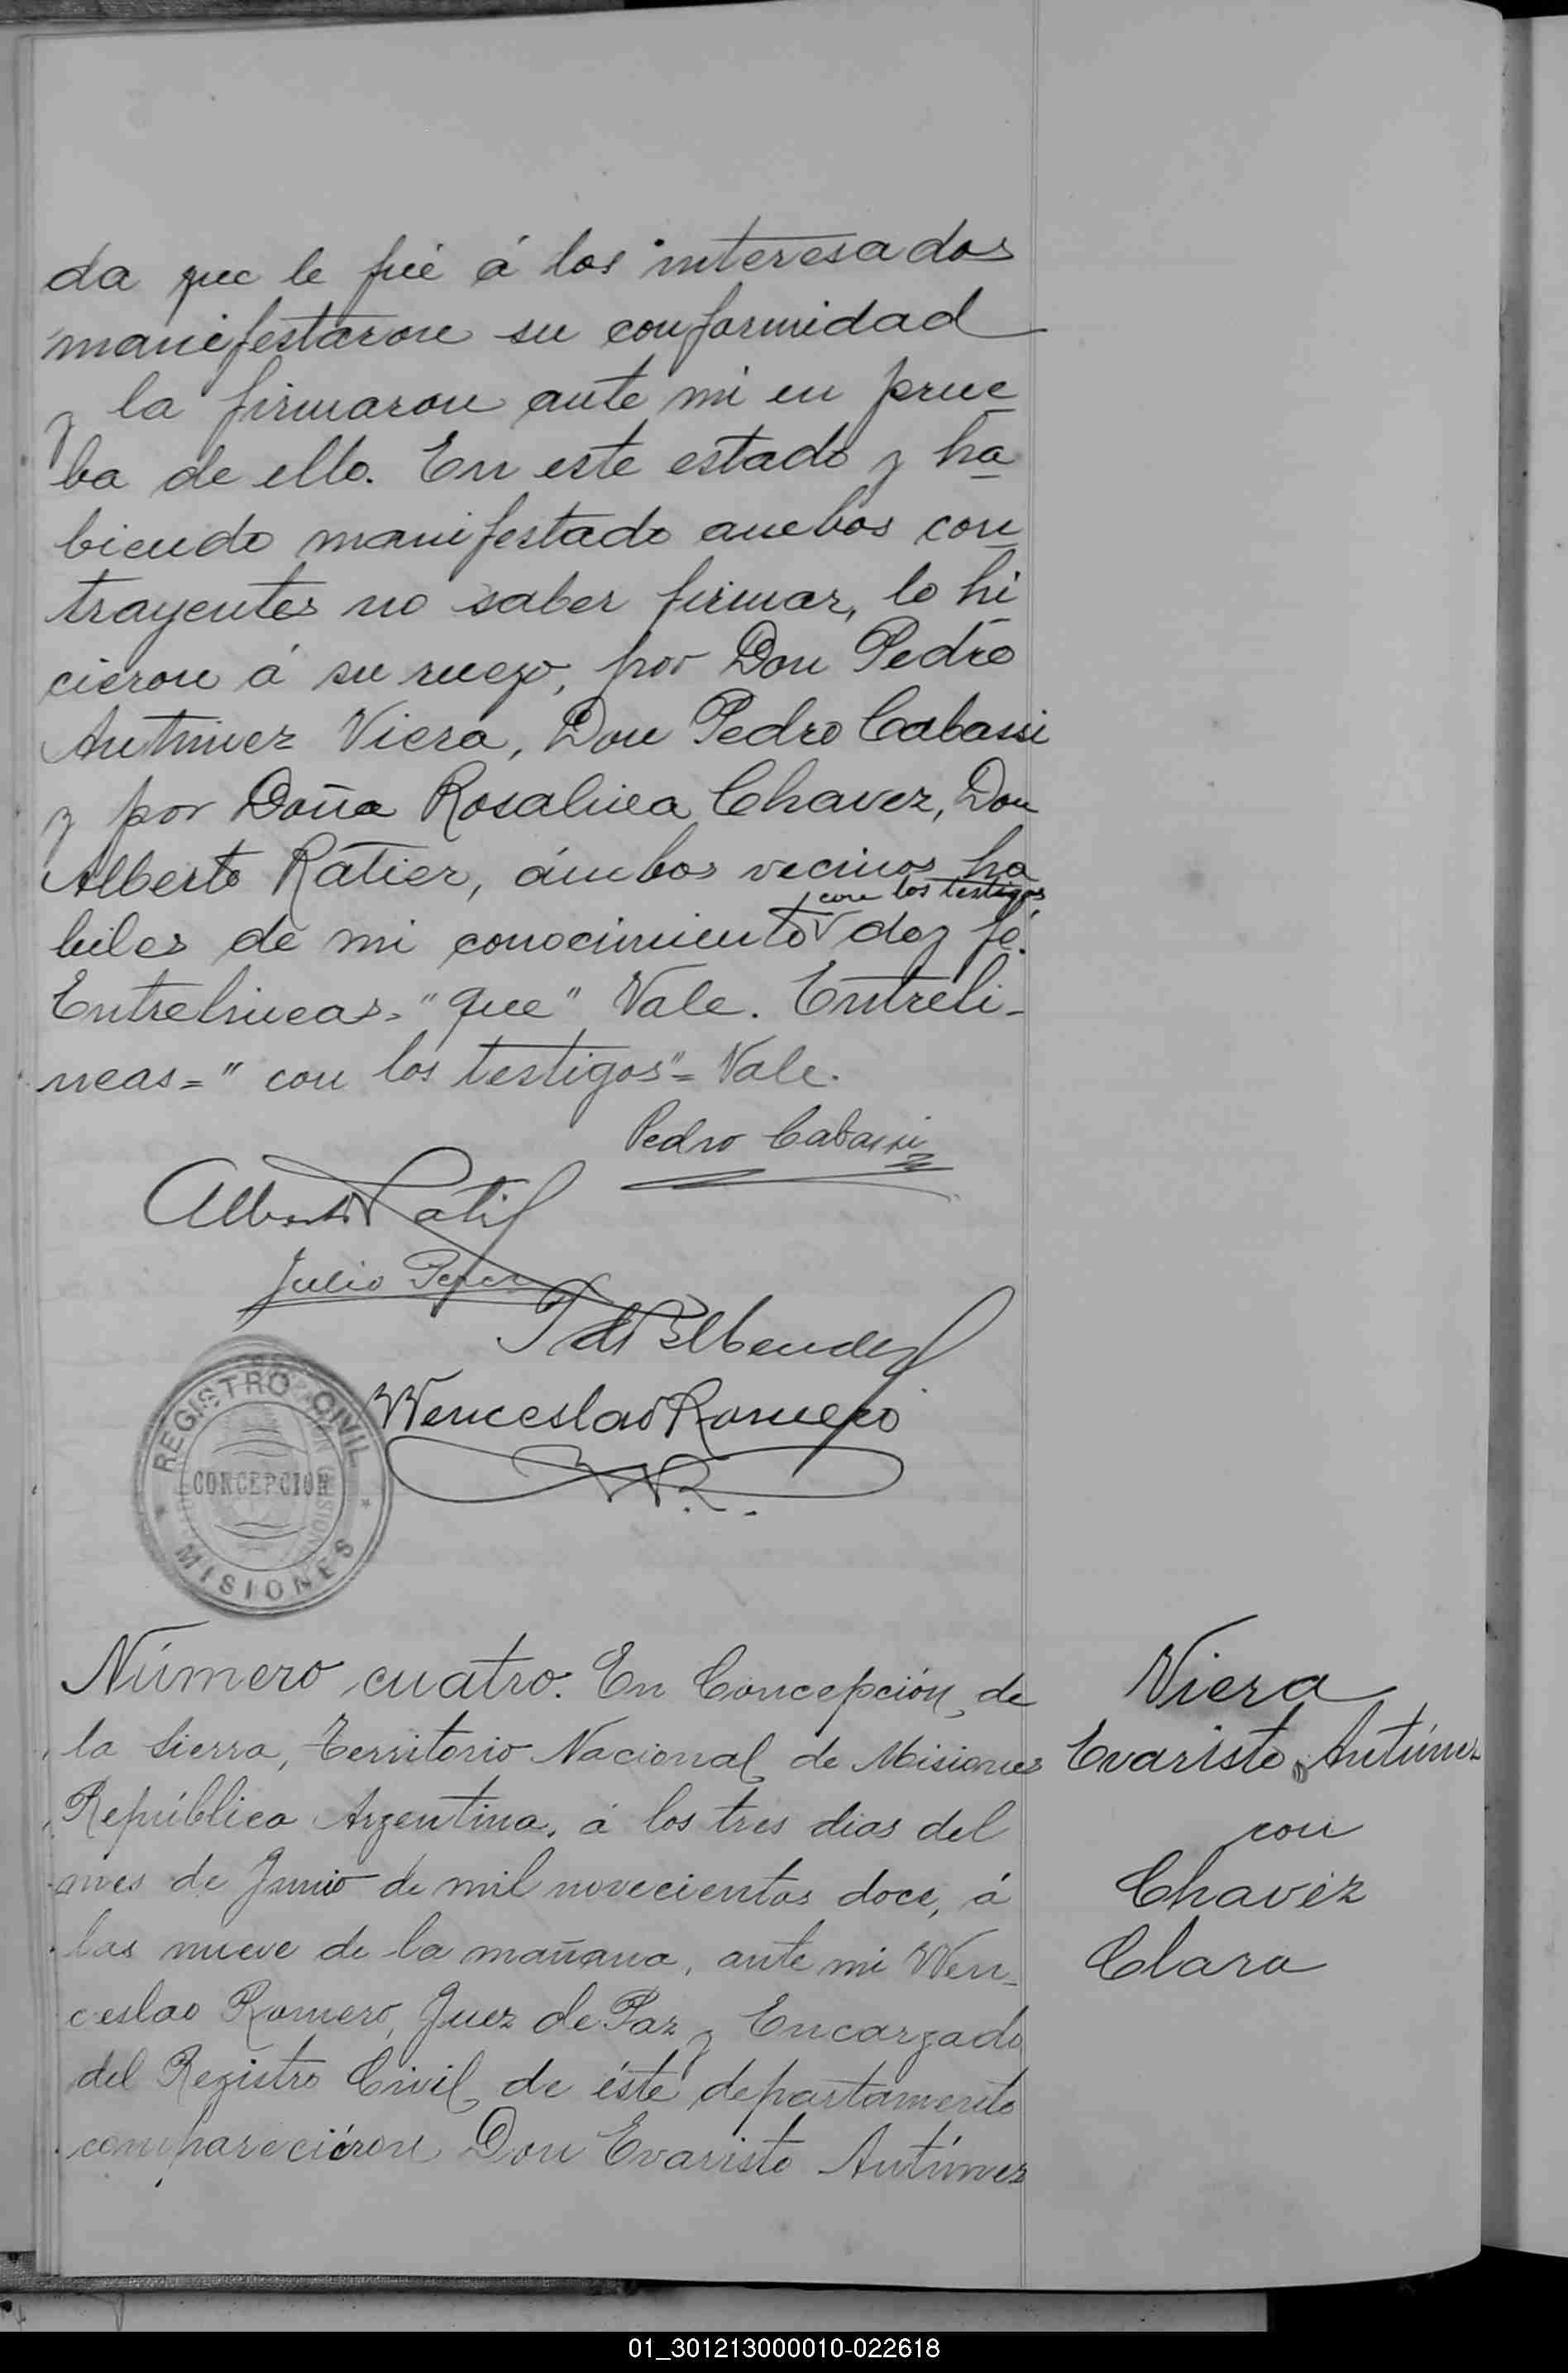 da que le fué á los interesados
manifestaron su conformidad
y la firmaron ante mi en prue
ba de ello. En este estado y ha
biendo manifestado ambos con
trayentes no saber firmar, lo hi
cieron á su ruego, por Don Pedro
Antunez Viera, Don Pedro Cabassi
y por Doña Rosalina Chavez, Don
Alberto Ratier, ámbos vecinos ha
con los testigos
biles de mi conocimiento doy fé.
Entrelineas="que" Vale. Entreli-
neas="con los testigos"= Vale.
Pedro Cabassi
Alberto Ratier
Julio Perez
Wenceslao Romero
W.R.
REGISTRO CIVIL
CONCEPCION
MISIONES
Número cuatro. En Concepción de
la Sierra, Territorio Nacional de Misiones
República Argentina, á los tres dias del
mes de Junio de mil novecientos doce, á
las nueve de la mañana, ante mi Wen-
ceslao Romero, Juez de Paz y Encargado
del Registro Civil de éste departamento
compareciéron Don Evaristo Antúnez
Viera
Evaristo Antúnez
con
Chavéz
Clara
01_301213000010-022618